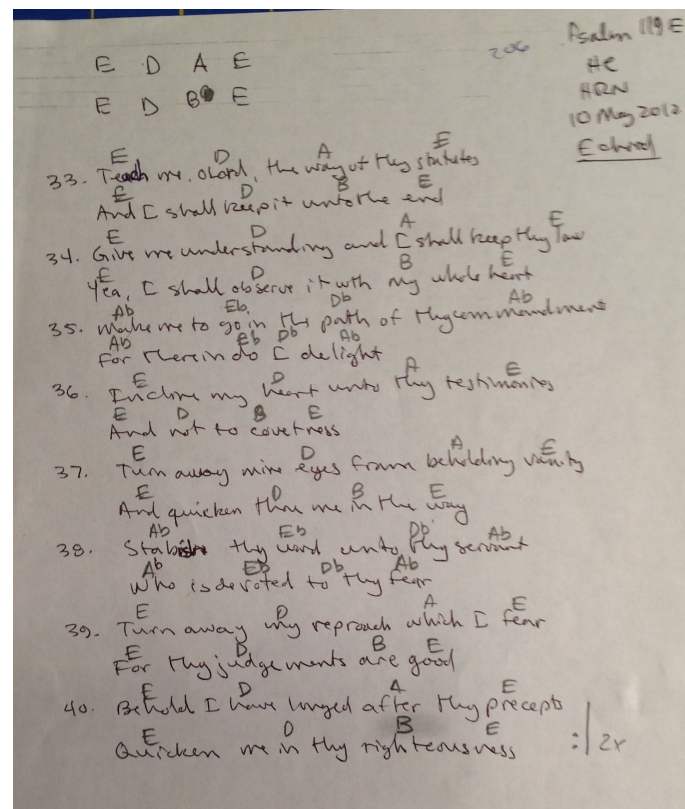 206
Psalm 119 E
He
HRN
10 May 2012
E chord
E D A E
E D B E
E D A E
33. Teach me, O Lord, the way of thy statutes
E D B E
And I shall keep it unto the end
E D A E
34. Give me understanding and I shall keep thy law
D B E
Yea, I shall observe it with my whole heart
Ab Eb Db Ab
35. Make me to go in the path of thy commandment
Ab Eb Db Ab
For therein do I delight
E D A E
36. Incline my heart unto thy testimonies
E D B E
And not to covetness
E D A E
37. Turn away mine eyes from beholding vanity
E D B E
And quicken thou me in the way
Ab Eb Db Ab
38. Stablish thy word unto thy servant
Ab Eb Db Ab
Who is devoted to thy fear
E D A E
39. Turn away my reproach which I fear
E D B E
For thy judgements are good
E D A E
40. Behold I have longed after thy precepts
E D B E
Quicken me in thy righteousness :| 2x